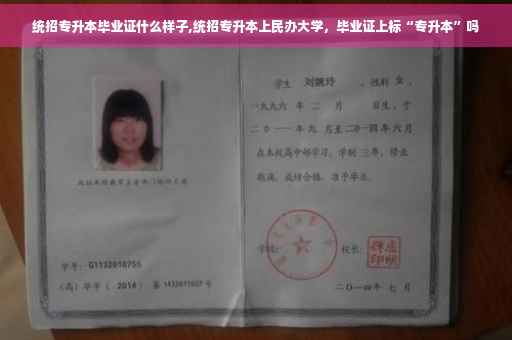 统招专升本毕业证什么样子,统招专升本上民办大学，毕业证上标“专升本”吗
学生 刘婉玲 ，性别 女 ，
一九九六 年 二 月 日生，于
二〇一一 年 九 月至 二〇一四 年 六 月
在本校高中部学习，学制 三 年，修业
期满，成绩合格，准予毕业。
学号： G1132010755
（高）毕字（ 2014 ）第 号
校长：
二〇一四年 七 月